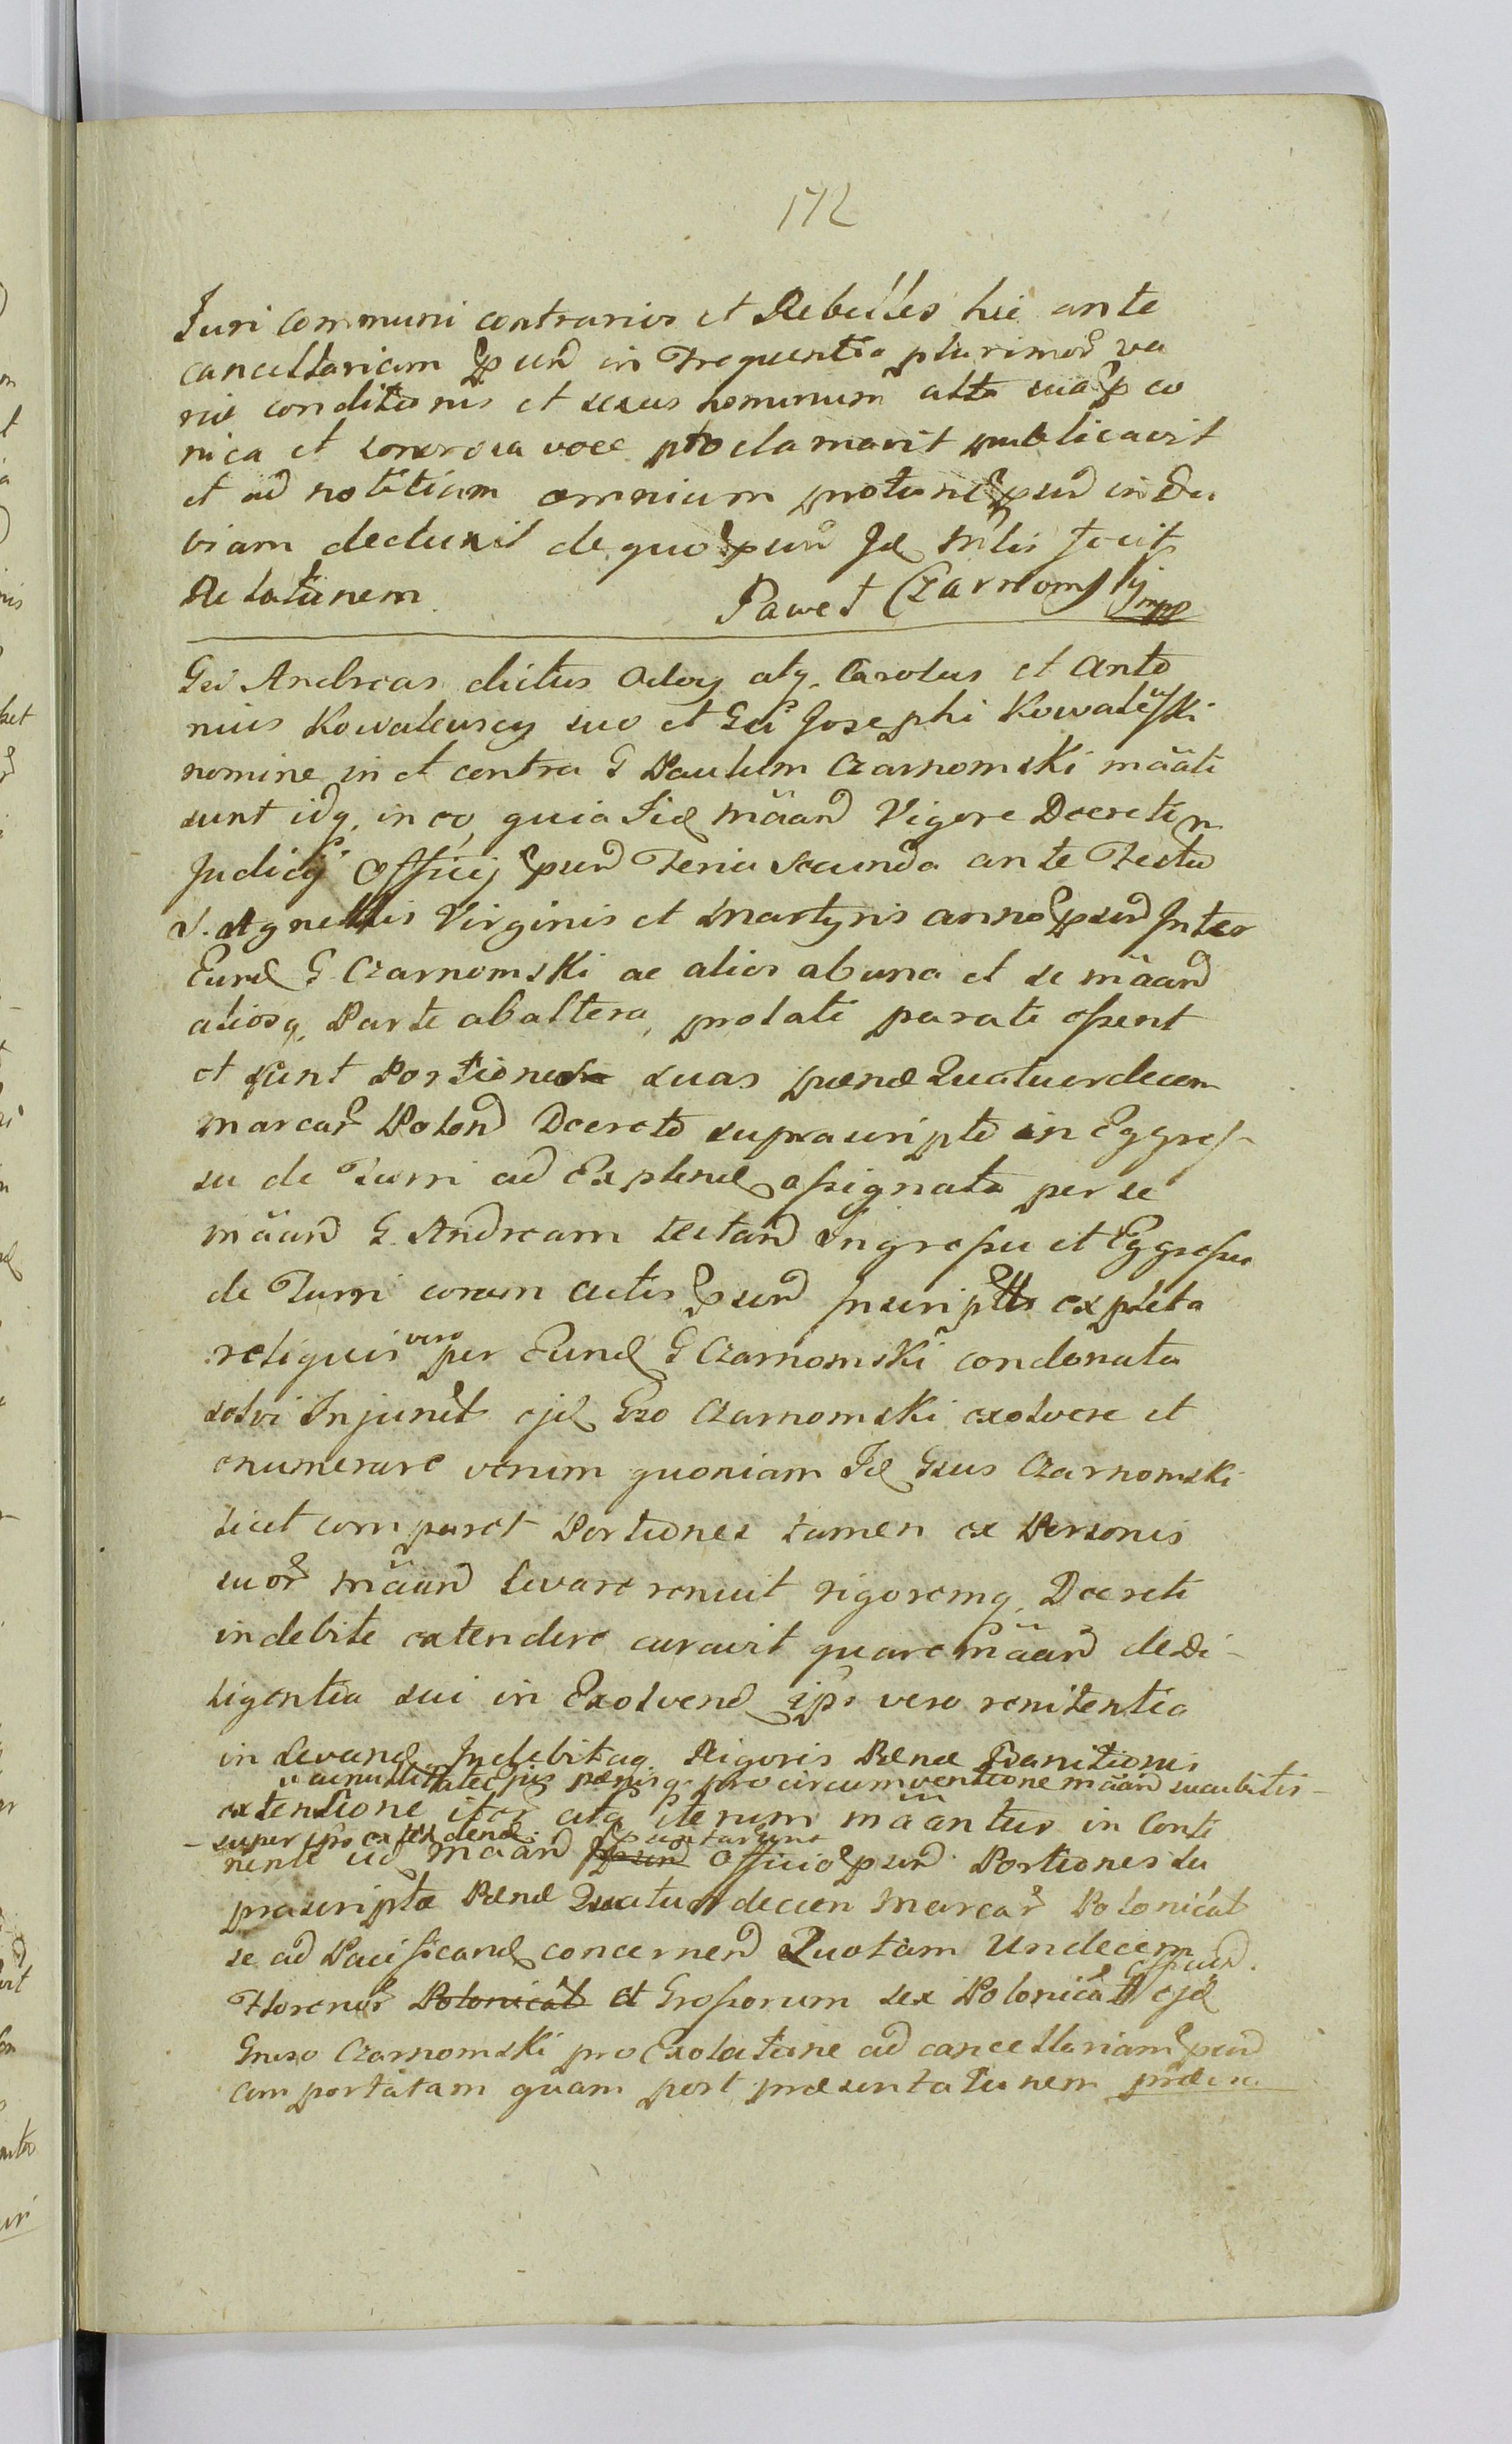 172
Juri communi contrarios et Rebelles hic ante
cancellariam pñd in Frequentia plurimor va
riæ conditionis et sexus hominum alta suaq co
nica et sonorosa voce proclamavit publicavit
et ad notitiam omnium protunc pñd in Du
biam deduxit de quo pñd Jd Mlis fecit
Relationem Paweł Czarnomskij mpp
Gsi Andreas dictus Odoy atq Carolus et Anto
nius Kowalewscy suo et Gsi Josephi Kowalewski
nomine in et contra G Paulum Czarnomski mããti
sunt idq, in eo, quia Jid mããnd Vigore Decreti n
Judicij Officij pñd Feria Secunda ante Festu
S. Agnetis Virginis et Martyris anno pñd Inter
Eund G Czarnomski ac alios ab una et se mããnd
aliosq, Parte ab altera, prolati parati essent
et sunt Portiones suas pænæ Quatuordecem
marcar Polon Decreto suprascripto in Eggres-
su de Turri ad Explend assignata per se
mããnd G. Andream testand Ingressu et Eggressu
de Turri coram actis pñd Inscripto expleta
reliquis vero per Eund G Czarnomski condonata
solvi Injunct ejd Gso Czarnomski exolvere et
enumerare verum quoniam Id Gsus Czarnomski
licet comparet Portiones tamen ex Personis
suor mããnd levare renuit rigoremq, Decreti
indebite extendere curavit quare mããnd de Di-
ligentia sui in Exolvend ips vero renitentia
in Levand Indebitaq Rigoris Pænæ Banitionis
ac nullitate ejus pænisq pro circumventione mããnd succubitis -
extensione iter atq iterum mããntur in Conti
- super ipso extendend.
nenti ad mããnd pñd Officio pñd Portiones su
prascripta Pænæ Quatuordecem Marcar Polonical
se ad Pacificand concernend Quotam Undecem
Florenor Polonical et Grossorum sex Polonical effcien. ejd
Gneroso Czarnomski pro Exolutione ad cancellariam pñd
comportatam quam post præsentationem